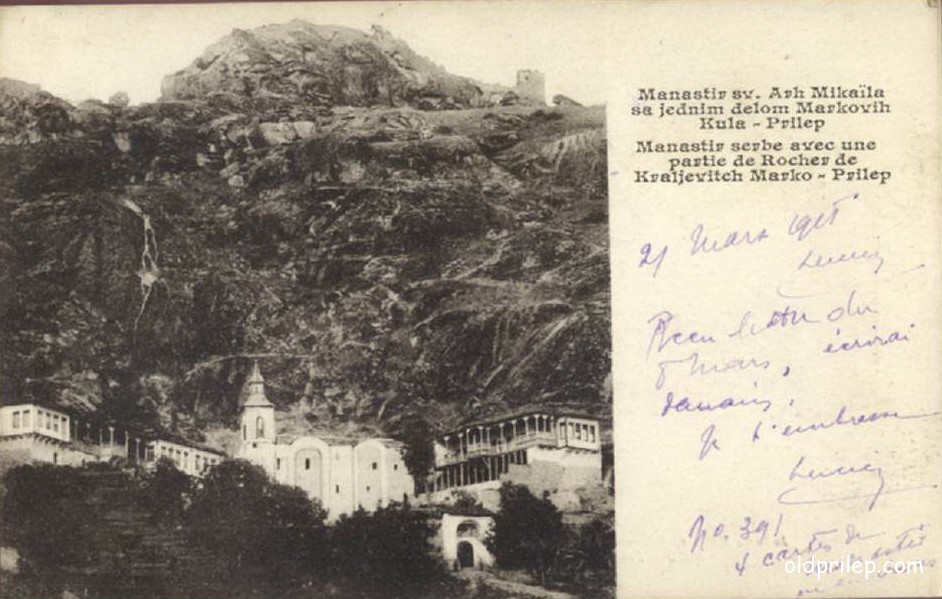 Manastir sv. Arh Mikaïla
sa jednim delom Markovih
Kula - Prilep
Manastir serbe avec une
partie de Rocher de
Kraljevitch Marko - Prilep
21 Mars
Reçu lettre du
8 Mars, écrirai
demain.
Je t'embrasse
No. 391
4 cartes
oldprilep.com